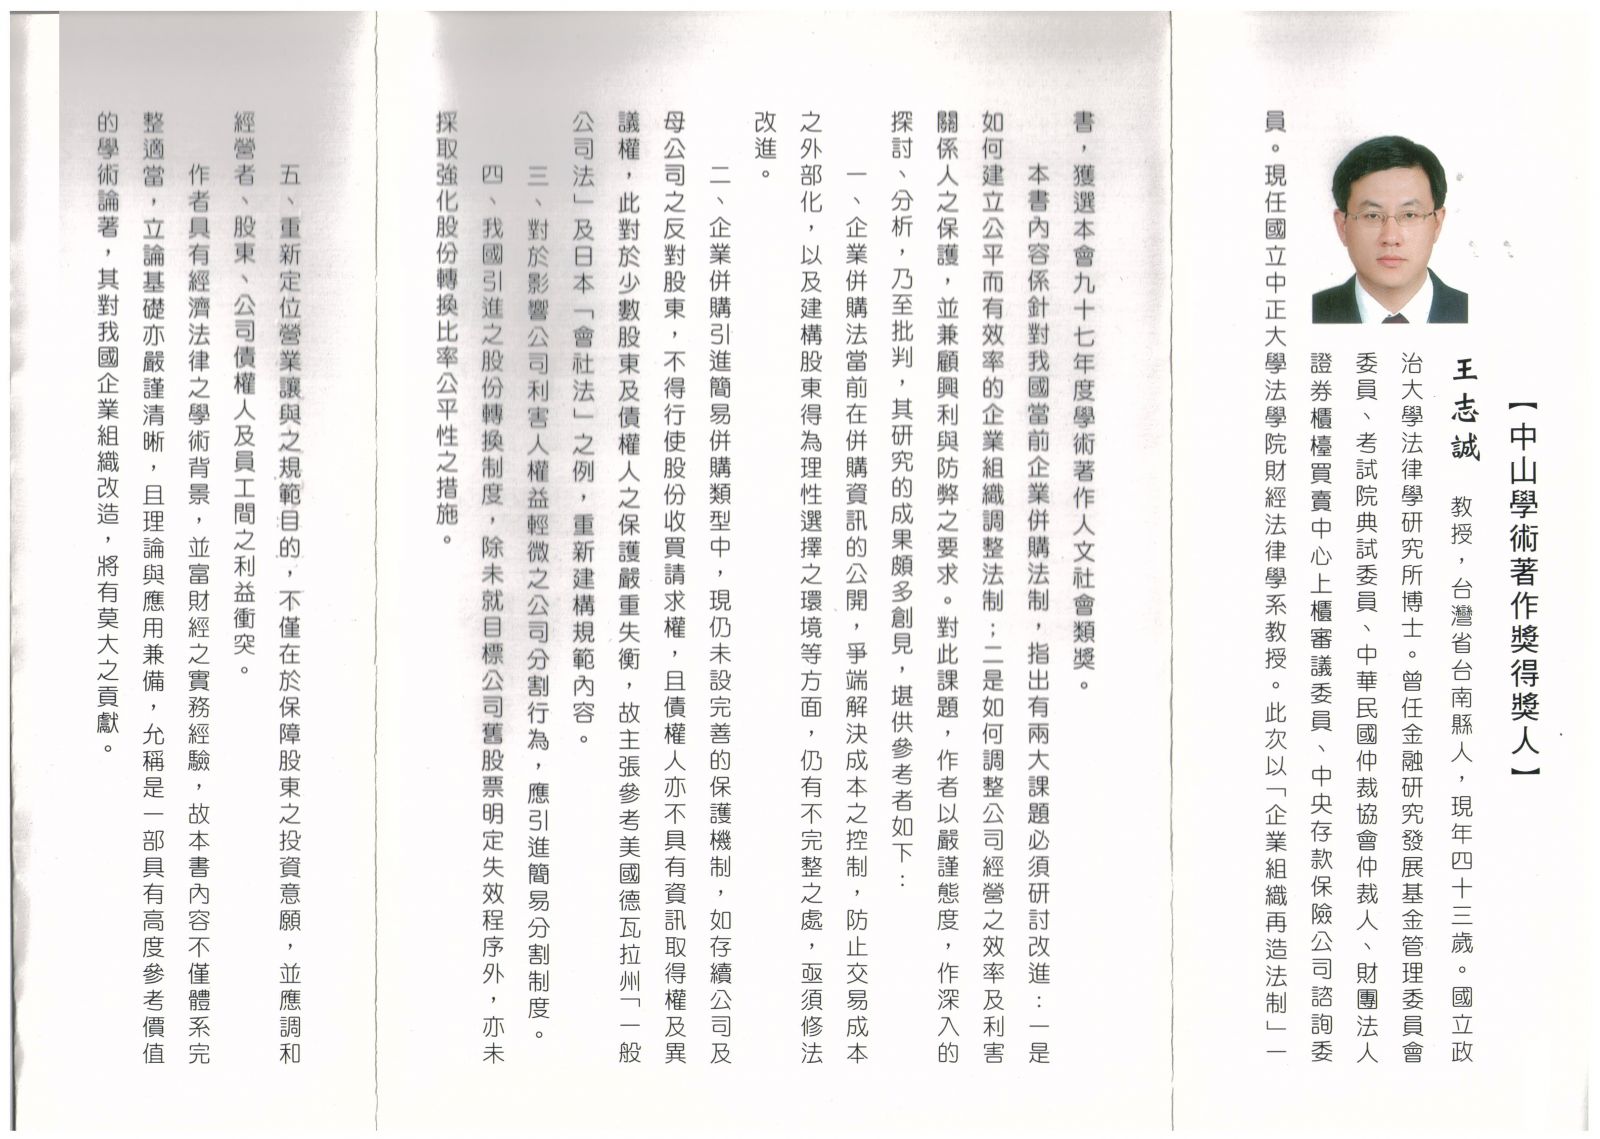 【中山學術著作獎得獎人】
王志誠　教授，台灣省台南縣人，現年四十三歲。國立政
治大學法律學研究所博士。曾任金融研究發展基金管理委員會
委員、考試院典試委員、中華民國仲裁協會仲裁人、財團法人
證券櫃檯買賣中心上櫃審議委員、中央存款保險公司諮詢委
員。現任國立中正大學法學院財經法律學系教授。此次以「企業組織再造法制」一
書，獲選本會九十七年度學術著作人文社會類獎。
本書內容係針對我國當前企業併購法制，指出有兩大課題必須研討改進：一是
如何建立公平而有效率的企業組織調整法制；二是如何調整公司經營之效率及利害
關係人之保護，並兼顧興利與防弊之要求。對此課題，作者以嚴謹態度，作深入的
探討、分析，乃至批判，其研究的成果頗多創見，堪供參考者如下：
一、企業併購法當前在併購資訊的公開，爭端解決成本之控制，防止交易成本
之外部化，以及建構股東得為理性選擇之環境等方面，仍有不完整之處，亟須修法
改進。
二、企業併購引進簡易併購類型中，現仍未設完善的保護機制，如存續公司及
母公司之反對股東，不得行使股份收買請求權，且債權人亦不具有資訊取得權及異
議權，此對於少數股東及債權人之保護嚴重失衡，故主張參考美國德瓦拉州「一般
公司法」及日本「會社法」之例，重新建構規範內容。
三、對於影響公司利害人權益輕微之公司分割行為，應引進簡易分割制度。
四、我國引進之股份轉換制度，除未就目標公司舊股票明定失效程序外，亦未
採取強化股份轉換比率公平性之措施。
五、重新定位營業讓與之規範目的，不僅在於保障股東之投資意願，並應調和
經營者、股東、公司債權人及員工間之利益衝突。
作者具有經濟法律之學術背景，並富財經之實務經驗，故本書內容不僅體系完
整適當，立論基礎亦嚴謹清晰，且理論與應用兼備，允稱是一部具有高度參考價值
的學術論著，其對我國企業組織改造，將有莫大之貢獻。